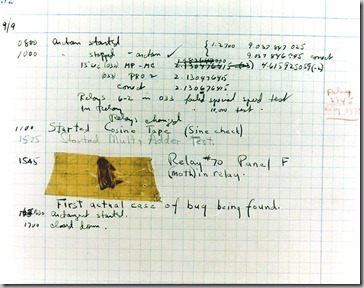 9/9
0800 Antan started { 1.2700 9.037 847 025
1000 " stopped - antan ✓ 9.037 846 995 correct
13"uc (032) MP - MC 4.615925059(-2)
(033) PRO 2 2.130476415
correct 2.130676415
Relays 6-2 in 033 failed special speed test
in Relay " 10.000 test.
Relays changed
1100 Started Cosine Tape (Sine check)
1525 Started Multi Adder Test.
1545 Relay #70 Panel F
(moth) in relay.
First actual case of bug being found.
1630 antangent started.
1700 closed down.
Relay